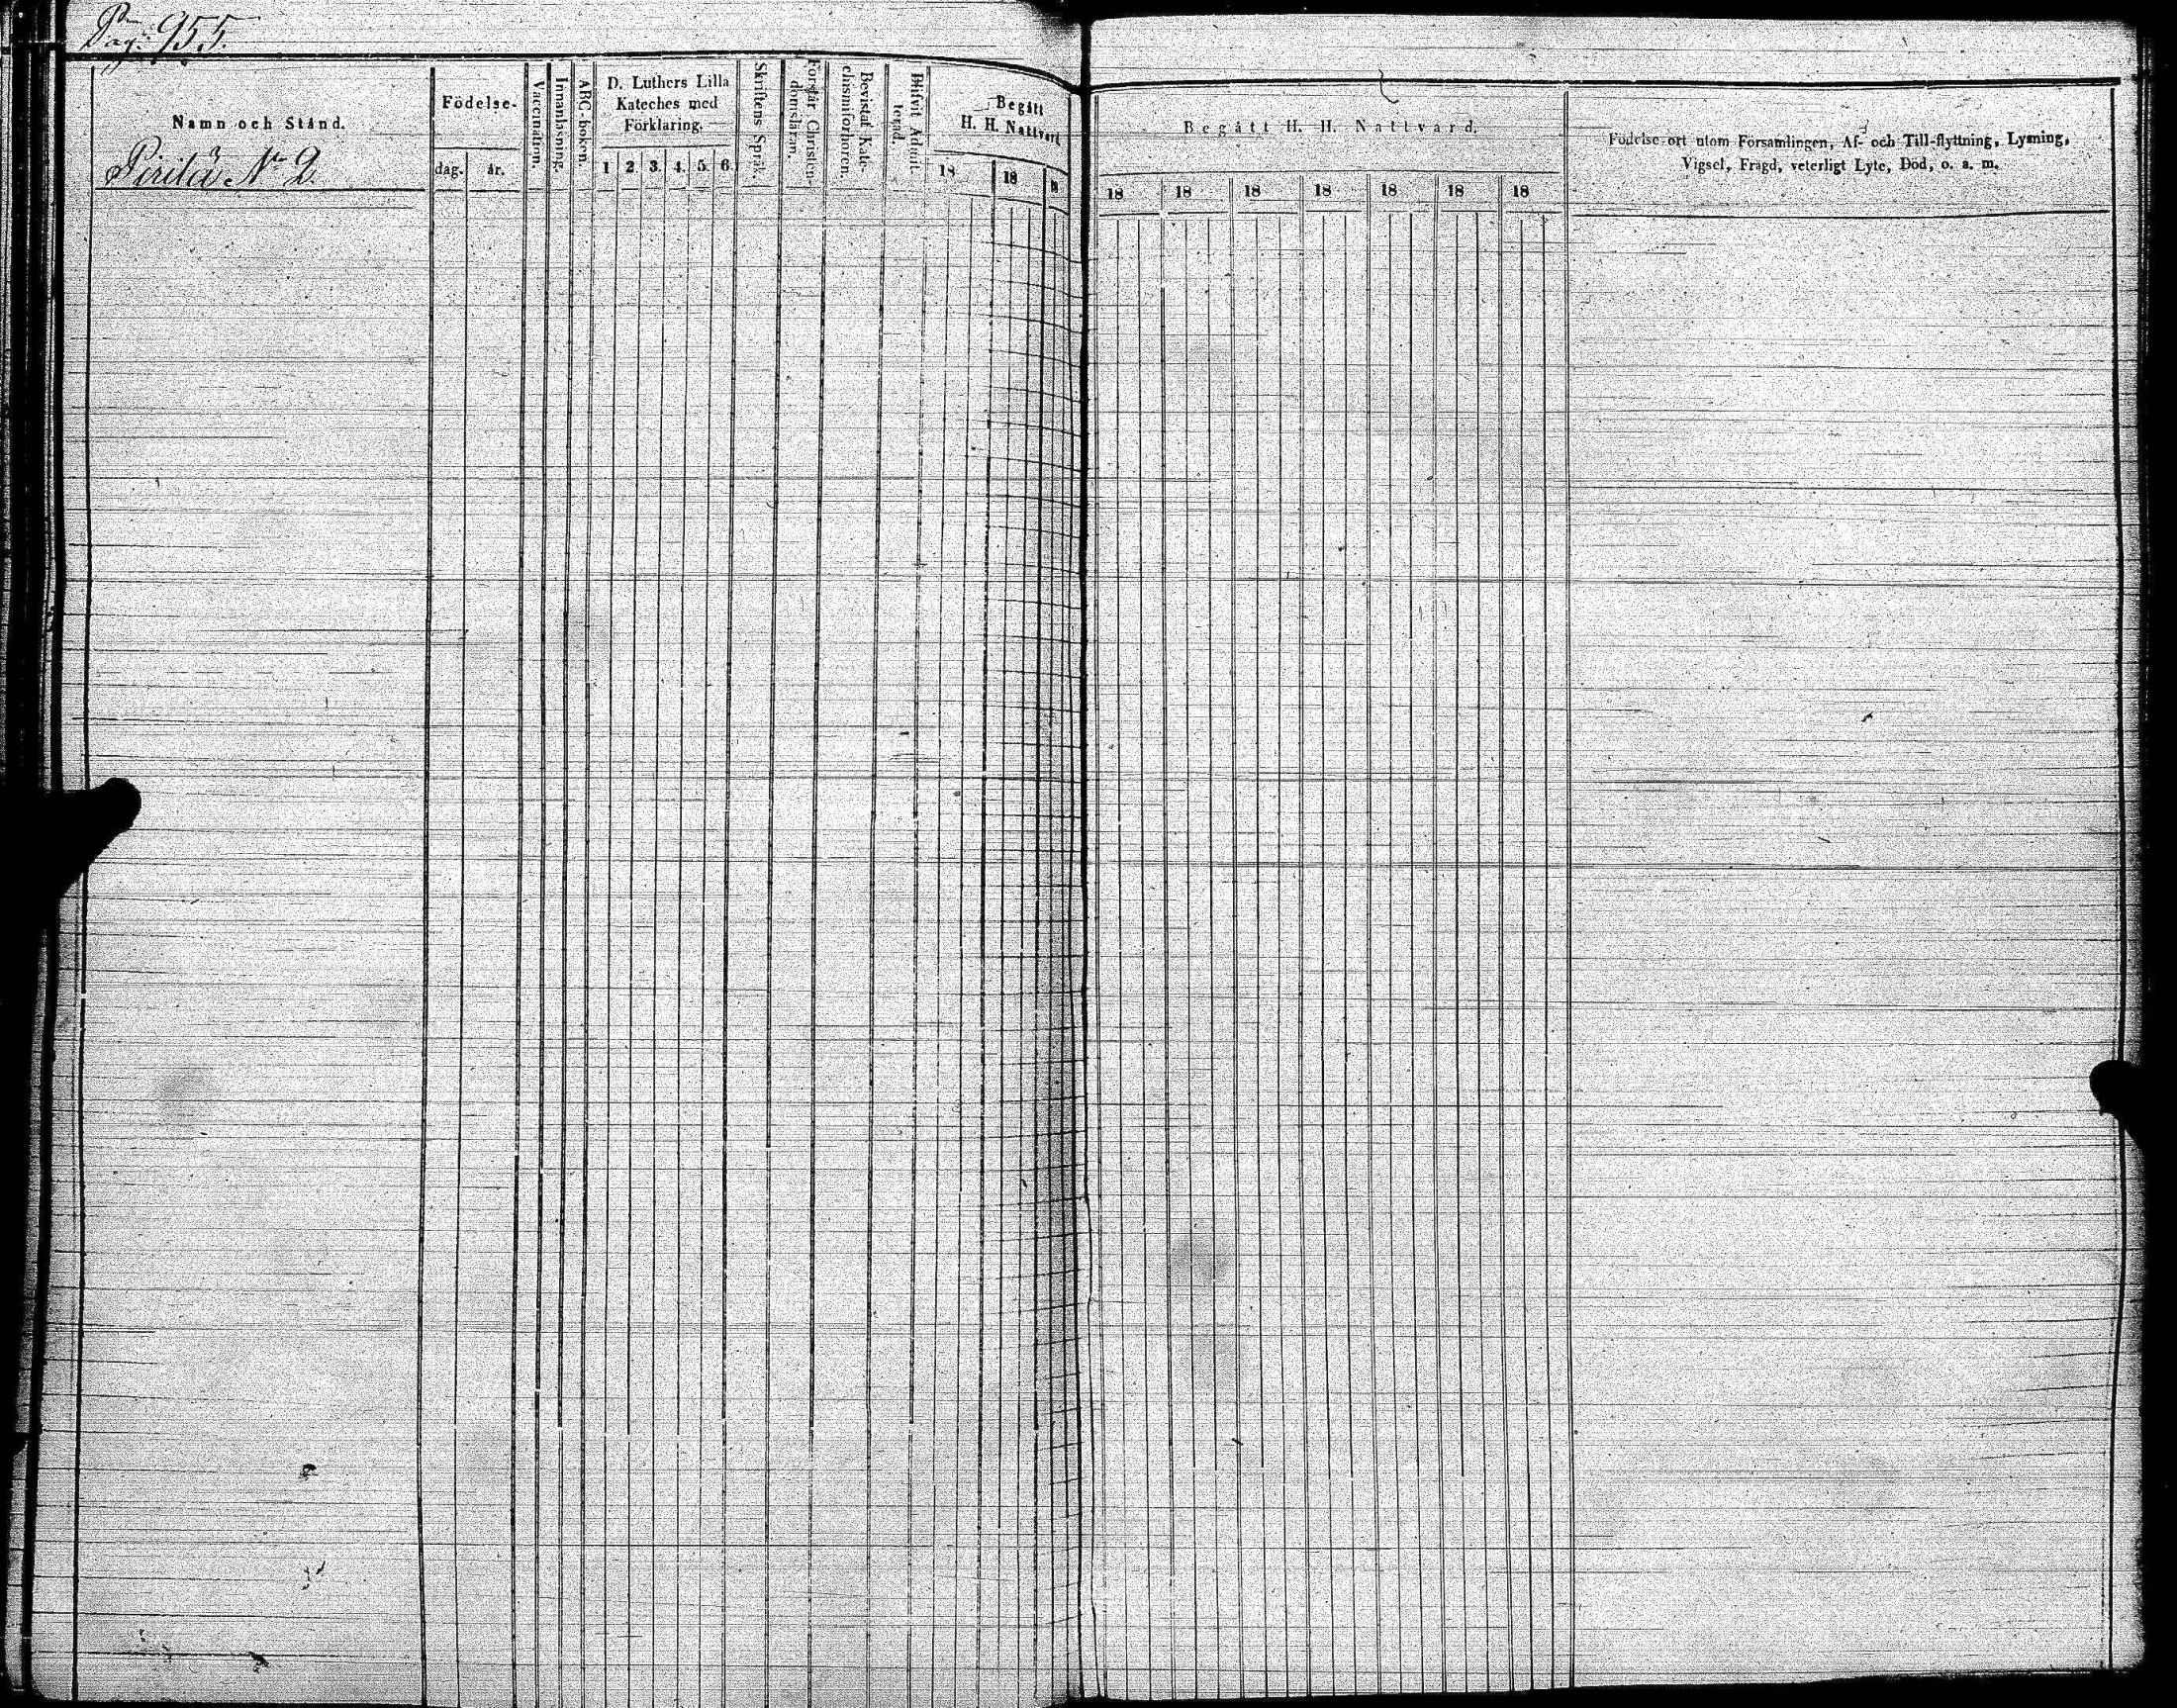 Pag: 955.
Namn och Stånd.
Pirilä No 2.
Födelse-
dag. år.
Vaccination.
Innanläsning.
ABC-boken.
D. Luthers Lilla
Kateches med
Förklaring.
1 2 3. 4. 5. 6.
Skriftens Språk.
Förstår Christen-
domsläran.
Bevistat Kate-
chismiförhören.
Blifvit Admit-
terad.
Begått
H. H. Nattvard
18 18 18
Begått H. H. Nattvard.
18 18 18 18 18 18 18
Födelse-ort utom Församlingen, Af- och Till-flyttning, Lysning,
Vigsel, Frägd, veterligt Lyte, Död, o. a. m.